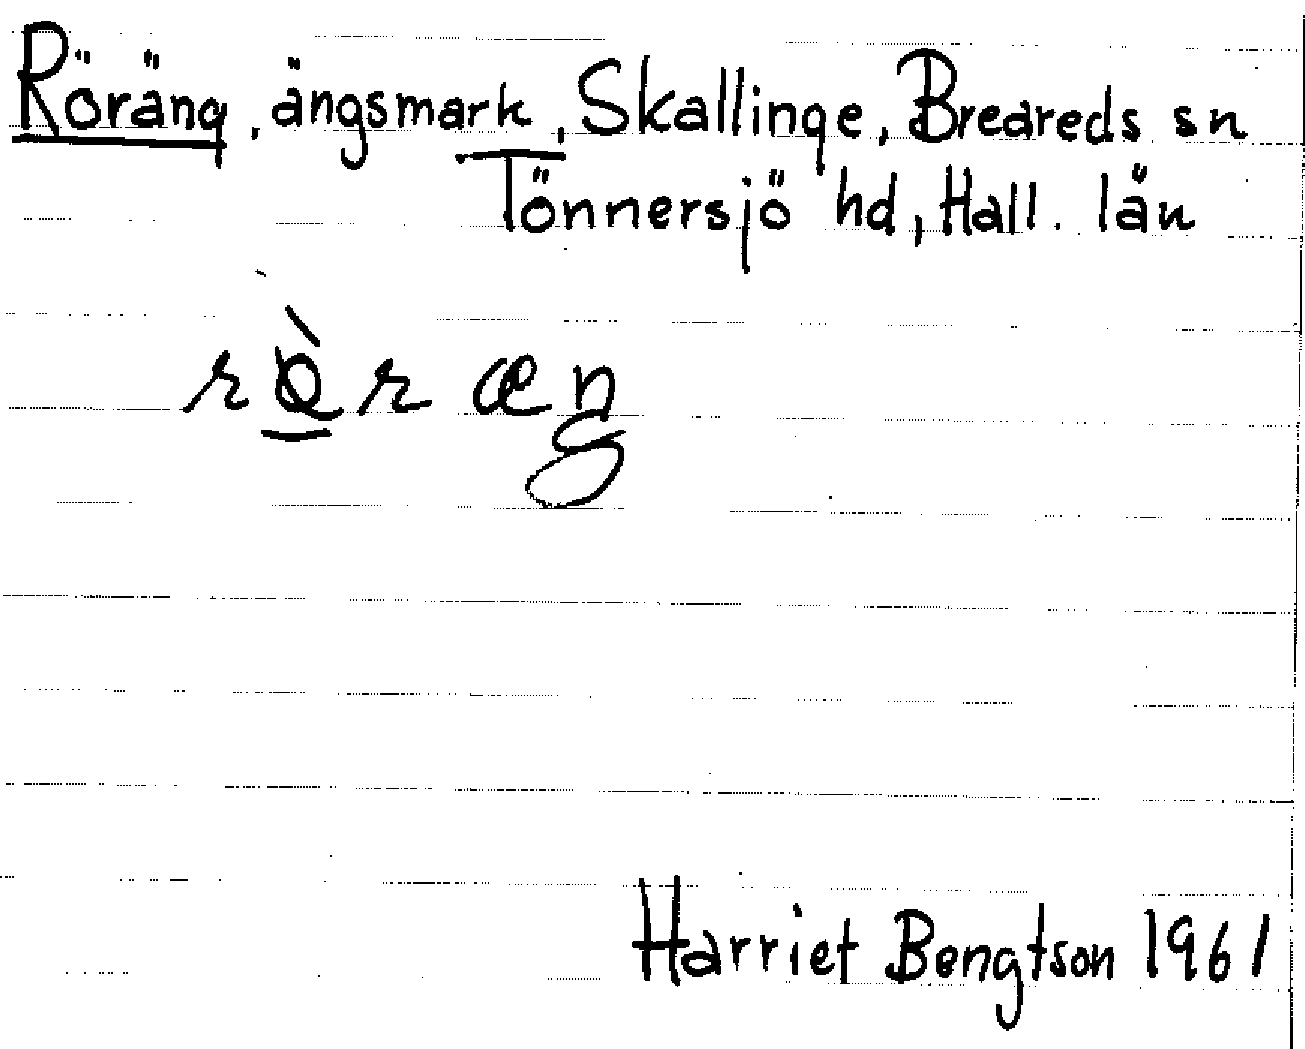 Röräng, ängsmark, Skallinge, Breareds sn
Tönnersjö hd, Hall. län
Harriet Bengtson 1961